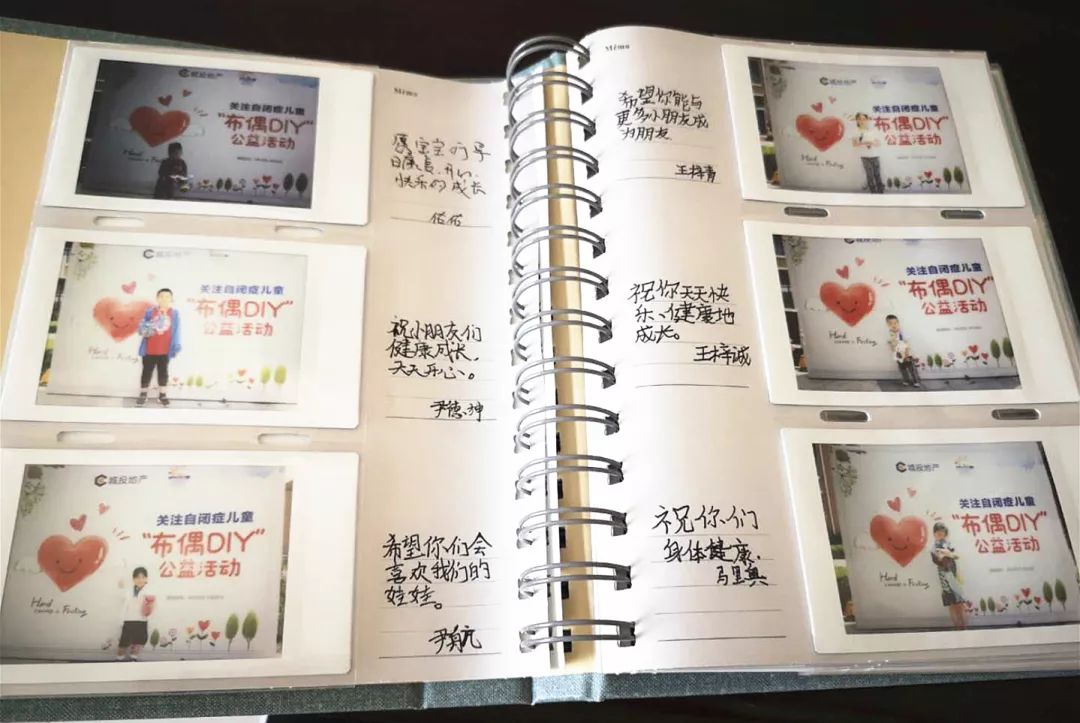 城投地产
关注自闭症儿童
"布偶DIY"
公益活动
Mémo
愿宝宝们早
日成长、开心、
快乐的成长
佑佑
城投地产
关注自闭症儿童
"布偶DIY"
公益活动
Hand
Feeling
祝小朋友们
健康成长,
天天开心。
尹德坤
城投地产
关注自闭症儿童
"布偶DIY"
公益活动
Hand
Feeling
希望你们会
喜欢我们的
娃娃。
尹航
Mémo
希望你能与
更多小朋友成
为朋友
王梓青
城投地产
关注自闭症儿童
"布偶DIY"
公益活动
Hand
Feeling
祝你天天快
乐、健康地
成长。
王梓诚
城投地产
关注自闭症儿童
"布偶DIY"
公益活动
Hand
Feeling
祝你们
身体健康,
城投地产
关注自闭症儿童
"布偶DIY"
公益活动
Hand
Feeling